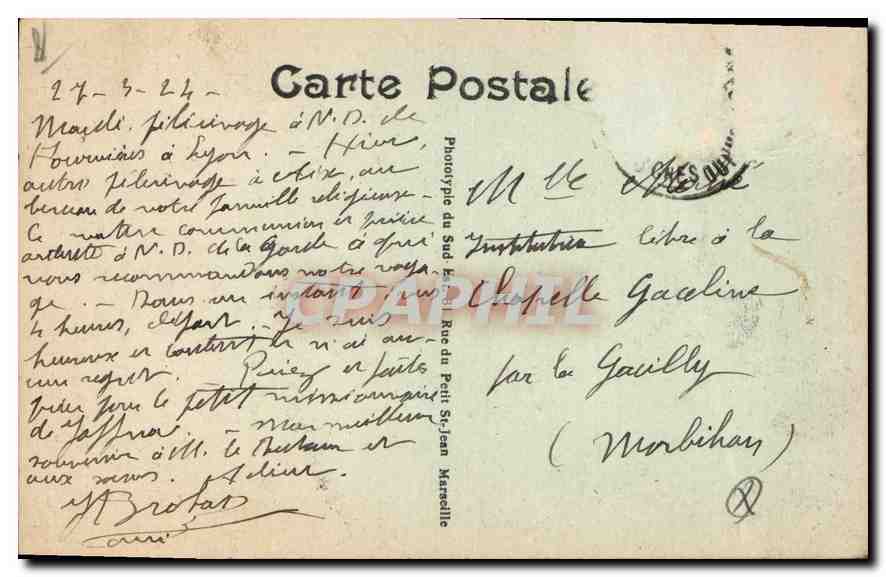 27-3-24-
Carte Postale
Mardi, pélérinage à N.D. de
Fourvières à Lyon. - Hier,
autre pélerinage à Aix, au
berceau de notre famille religieuse -
Ce matin communion et prière
à N.D. de la Garde à qui
nous recommandons notre voya-
ge. - Dans un instant, vers
4 heures, départ. Je suis
heureux et content et n'ai au-
cun regret. Priez et faites
prier pour le petit missionnaire
de Jaffna. - Mon meilleur
souvenir à M. le Recteur et
aux soeurs. Adieu.
Phototypie du Sud Est 8 Rue du Petit St-Jean Marseille
CPAPHIL
Mlle
Institutrice libre à la
Chapelle Gaceline
par la Gacilly
(Morbihan)
X